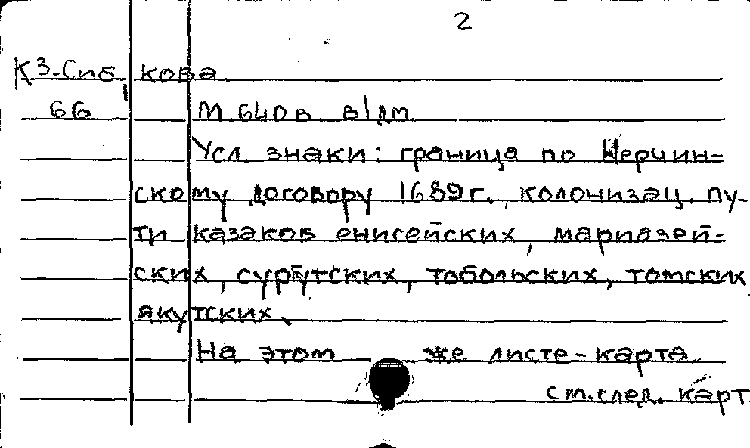 2
К3-Сиб. кова
66 М 640в в 1 дм
Усл знаки: граница по Нерчин=
скому договору 1689 г., колонизац. пу-
ти казаков енисейских, мангазей-
ских, сургутских, тобольских, томских
якутских.
На этом же листе-карта
см. след. карт